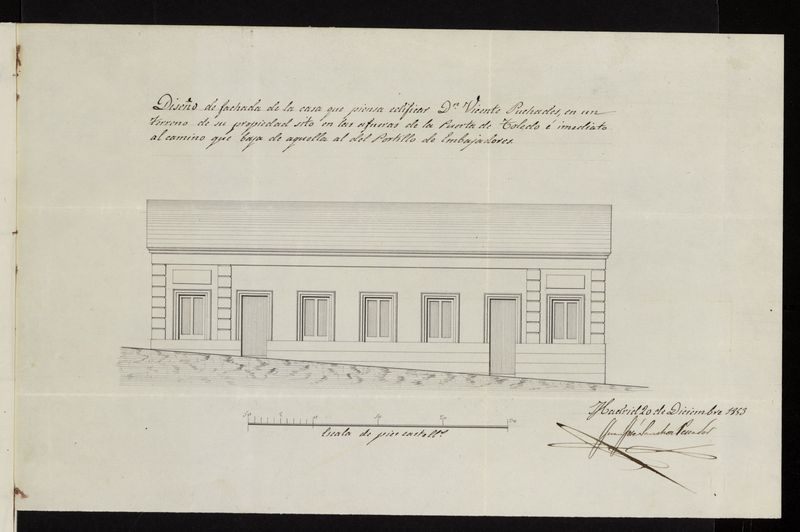 Diseño de fachada de la casa que piensa edificar Dn. Vicente Puchades, en un
terreno de su propiedad sito en las afueras de la Puerta de Toledo é imediato
al camino que baja de aquella al del Portillo de Embajadores.
Madrid 20 de Diciembre 1853
Juan José Sanchez Pescador
Escala de pies castellns.